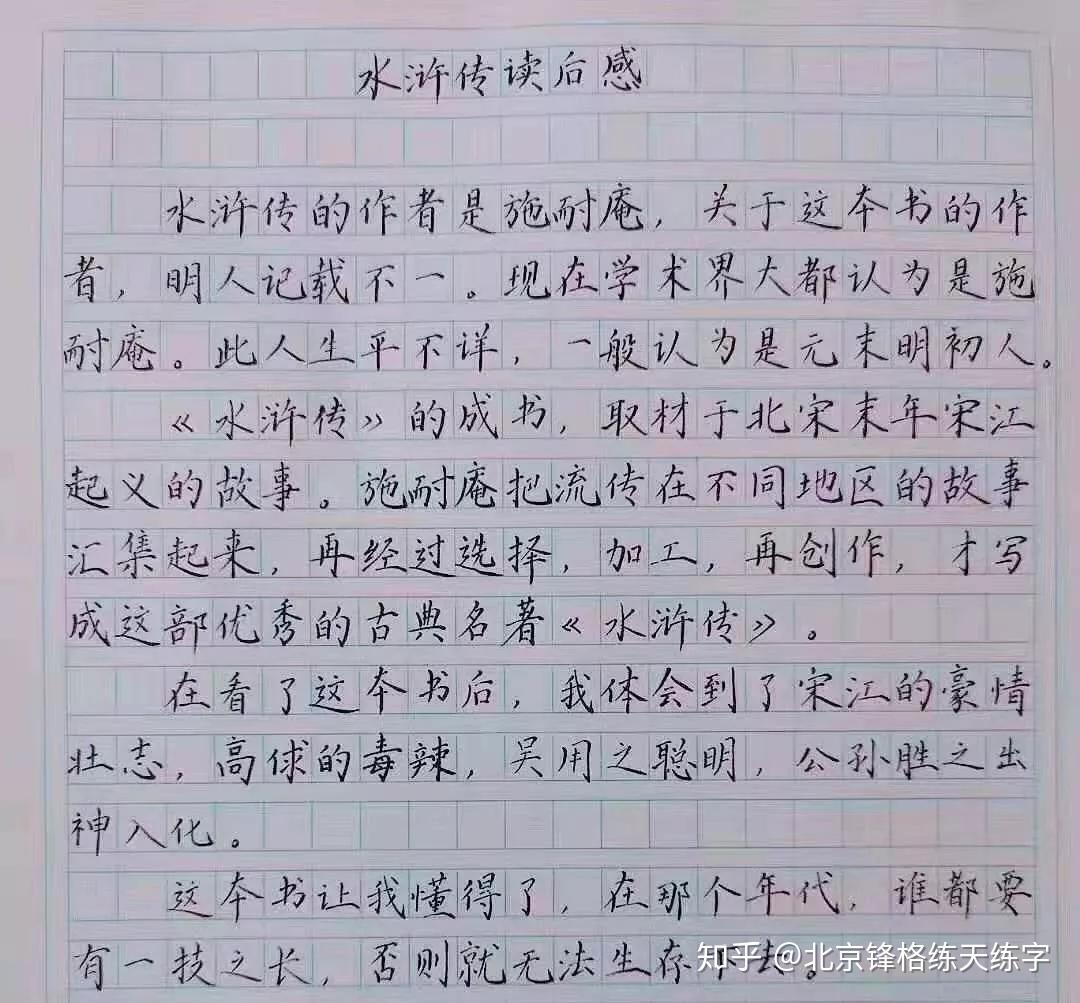 水浒传读后感
水浒传的作者是施耐庵，关于这本书的作
者，明人记载不一。现在学术界大都认为是施
耐庵。此人生平不详，一般认为是元末明初人。
《水浒传》的成书，取材于北宋末年宋江
起义的故事。施耐庵把流传在不同地区的故事
汇集起来，再经过选择，加工，再创作，才写
成这部优秀的古典名著《水浒传》。
在看了这本书后，我体会到了宋江的豪情
壮志，高俅的毒辣，吴用之聪明，公孙胜之出
神入化。
这本书让我懂得了，在那个年代，谁都要
有一技之长，否则就无法生存下去。
知乎@北京锋格练天练字